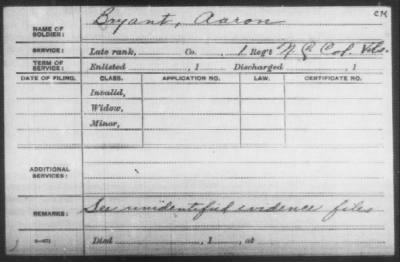 CM
NAME OF SOLDIER: Bryant, Aaron
SERVICE: Late rank, Co. 1 Reg't N C Col. Vols.
TERM OF SERVICE: Enlisted , 1 Discharged , 1
DATE OF FILING. CLASS. APPLICATION NO. LAW. CERTIFICATE NO.
Invalid,
Widow,
Minor,
ADDITIONAL SERVICES:
REMARKS: See unidentified evidence files
Died , 1 , at